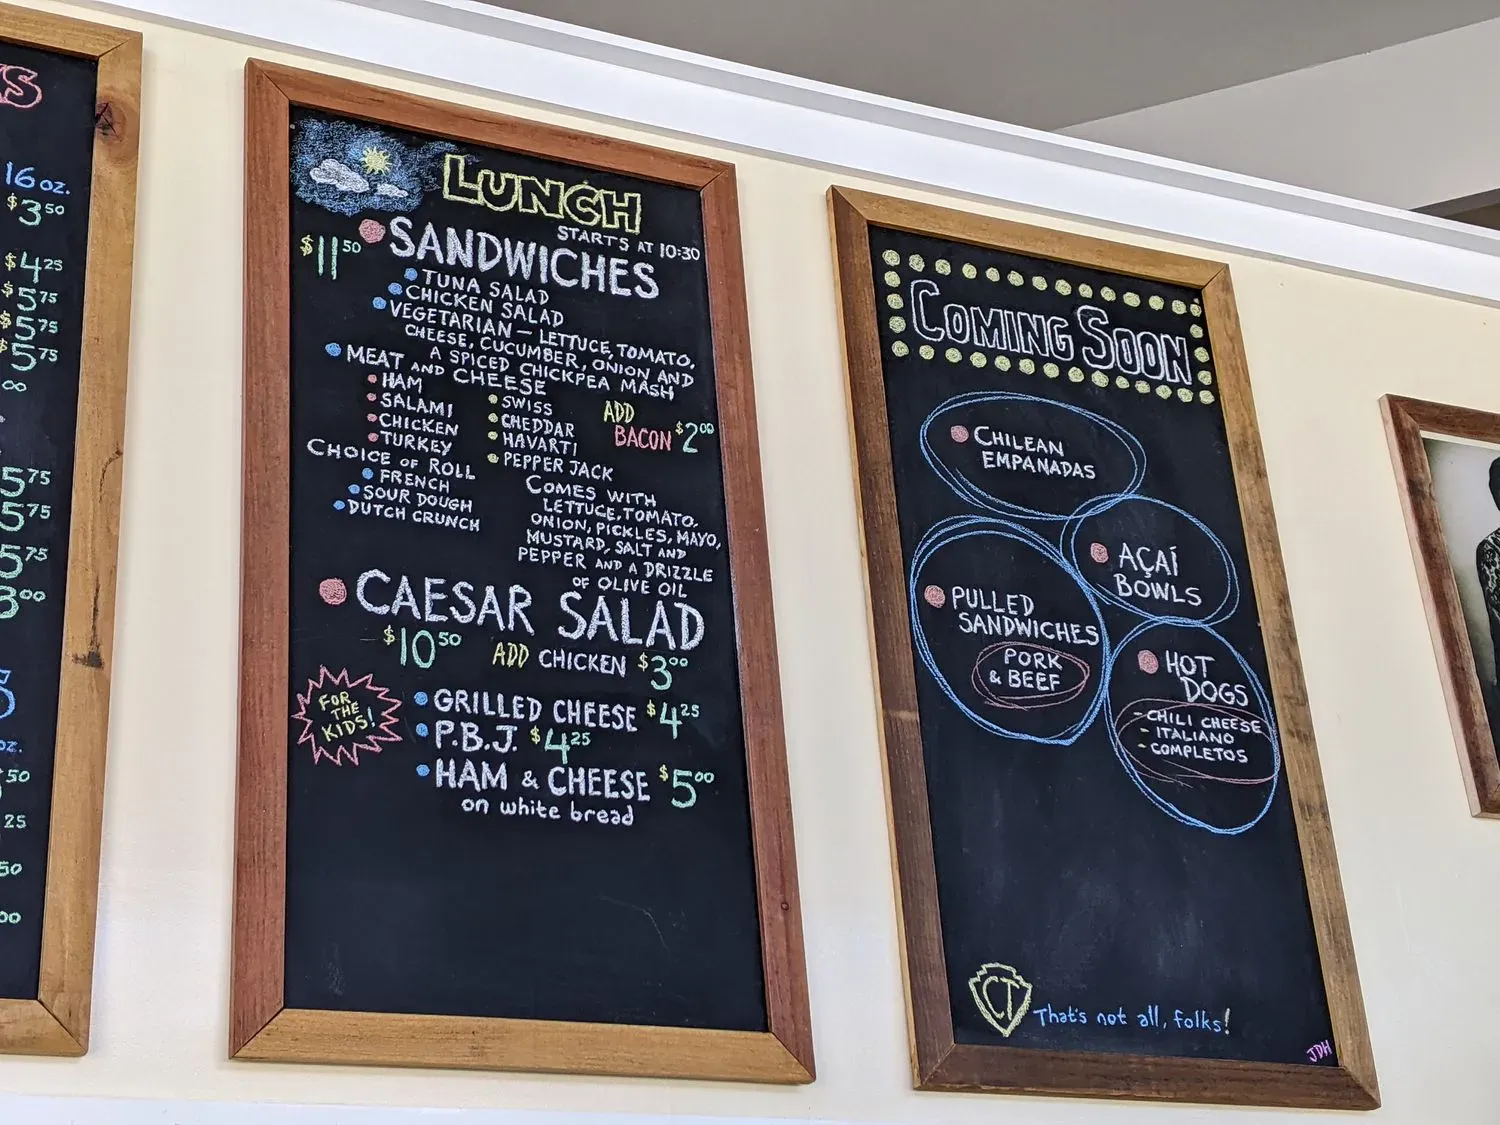 S
16 oz.
$3 50
$4 25
$5 75
$5 75
$5 75
00
5 75
5 75
5 75
3 00
S
oz.
50
25
50
00
LUNCH
STARTS AT 10:30
SANDWICHES
$11 50
TUNA SALAD
CHICKEN SALAD
VEGETARIAN – LETTUCE, TOMATO,
CHEESE, CUCUMBER, ONION AND
A SPICED CHICKPEA MASH
MEAT AND CHEESE
HAM
SALAMI
CHICKEN
TURKEY
SWISS
CHEDDAR
HAVARTI
PEPPER JACK
ADD
BACON $2 00
CHOICE OF ROLL
FRENCH
SOUR DOUGH
DUTCH CRUNCH
COMES WITH
LETTUCE, TOMATO,
ONION, PICKLES, MAYO,
MUSTARD, SALT AND
PEPPER AND A DRIZZLE
OF OLIVE OIL
CAESAR SALAD
$10 50 ADD CHICKEN $3 00
FOR
THE
KIDS!
GRILLED CHEESE $4 25
P.B.J. $4 25
HAM & CHEESE $5 00
on white bread
COMING SOON
CHILEAN
EMPANADAS
AÇAÍ
BOWLS
PULLED
SANDWICHES
PORK
& BEEF
HOT
DOGS
- CHILI CHEESE
- ITALIANO
- COMPLETOS
CT
That's not all, folks!
JDH